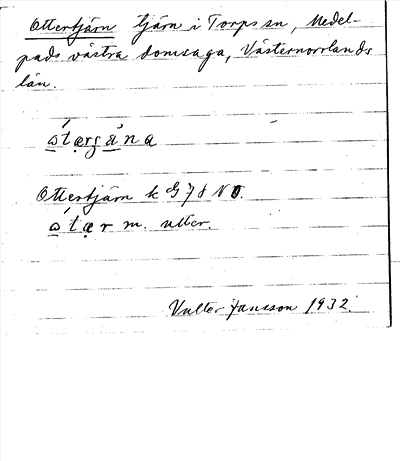 Ottertjärn tjärn i Torps sn, Medel-
pads västra domsaga, Västernorrlands
län.
Ottertjärn k
m. utter.
Valter Jansson 1932.